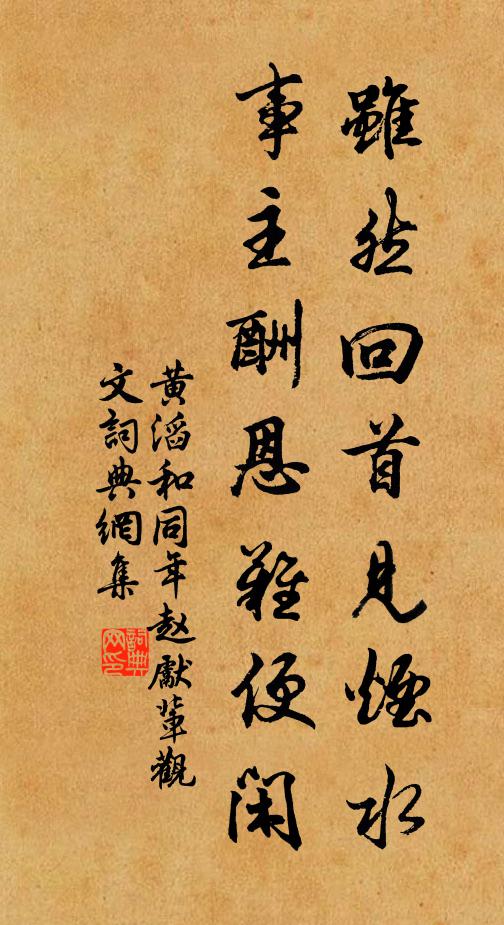 雖然回首見煙水
事主酬恩難便閑
黃滔和同年趙獻輩觀
文詞典網集
詞典網印